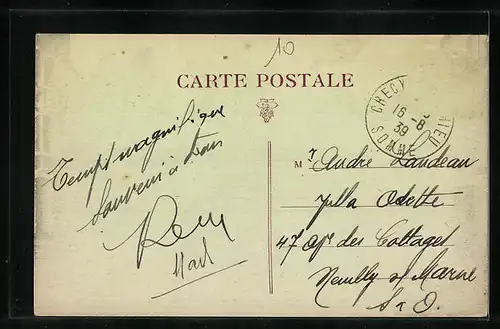 10
CARTE POSTALE
CRECY
16-8
39
SOMME
Temps magnifique
Souvenir à tous
M r André Landeau
Villa Odette
47 Av des Cottages
Neuilly s/ Marne
S & O.